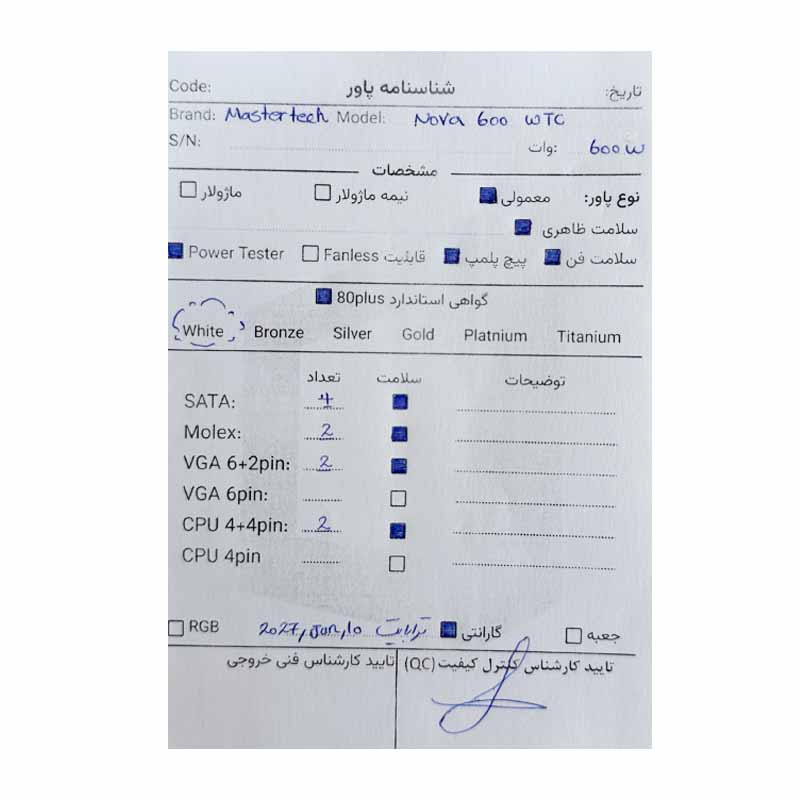 Code: شناسنامه پاور تاریخ:
Brand: Mastertech Model: Nova 600 WTC
S/N: وات: 600 W
مشخصات
نوع پاور: معمولی نیمه ماژولار ماژولار
سلامت ظاهری
سلامت فن پیچ پلمپ قابلیت Fanless Power Tester
گواهی استاندارد 80plus
White Bronze Silver Gold Platnium Titanium
تعداد سلامت توضیحات
SATA: 4
Molex: 2
VGA 6+2pin: 2
VGA 6pin:
CPU 4+4pin: 2
CPU 4pin
جعبه گارانتی ترابایت 2027, Jan, 10 RGB
تایید کارشناس کنترل کیفیت (QC) تایید کارشناس فنی خروجی